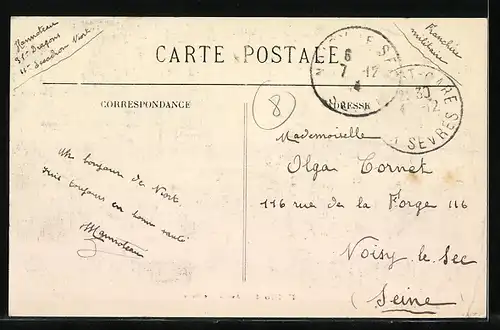 Hannoteau
31e Dragons
11e Escadron Niort.
Franchise
militaire
CARTE POSTALE
CORRESPONDANCE
ADRESSE
8
6
7-12
14
GARE
30
12
SEVRES
Mademoiselle
Olga Cornet
116 rue de la Forge 116
Noisy le Sec
(Seine)
Un bonjour de Niort.
suis toujours en bonne santé
Hannoteau